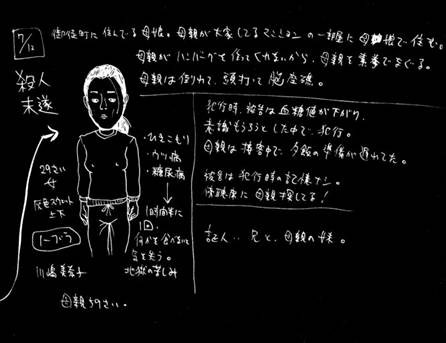 7/12
住んでいる母娘。母親が大家してるマンションの一部屋に母娘で住む。
母親がハンバーグを作ってくれないから、母親を素手でなぐる。
母親は倒れて、頭打って脳
殺人
未遂
29さい
女
上下
ノーブラ
・ひきこもり
・うつ病
・糖尿病
1時間半に
1回、
何かを食べないと
気を失う。
地獄の苦しみ
母親59さい。
犯行時、被告は血糖値が下がり、
意識もうろうとした中で、犯行。
母親は で、夕飯の準備が遅れてた。
被告は犯行時の記憶ナシ。
に母親探してる!
証人‥ 兄と、母親の妹。